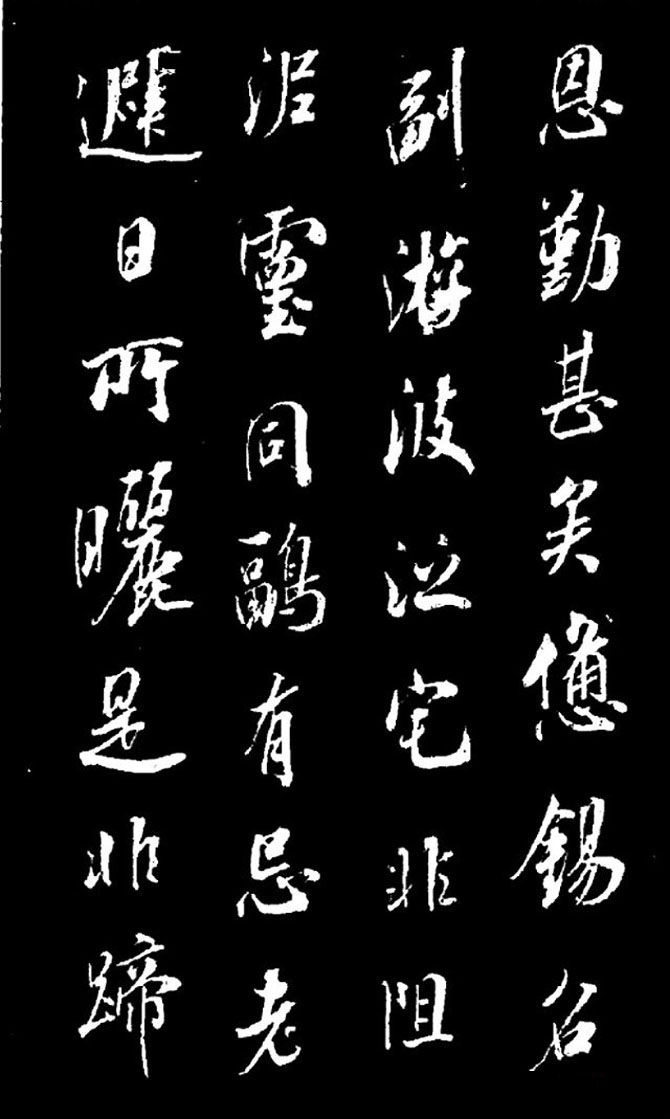 恩勤甚矣憊錫名
副游波泛宅非阻
靈同鷗有忌老
日所曬是非蹄